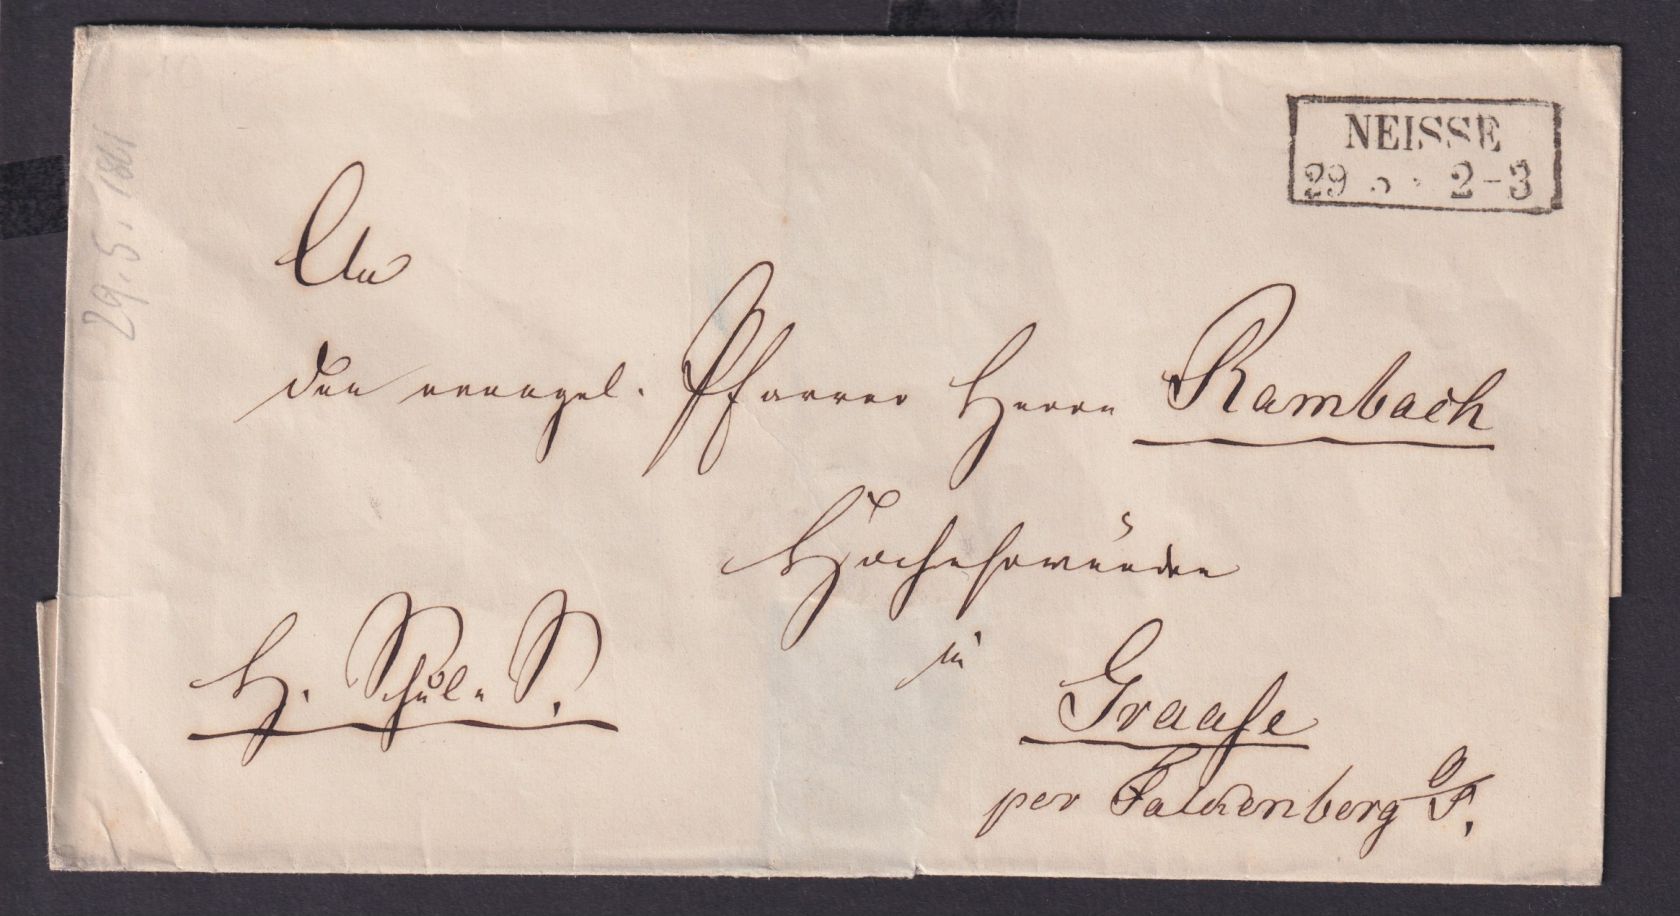 NEISSE
29 5 2-3
29.5.1861
An
den evangel. Pfarrer Herrn Rambach
Hochehrwürden
in
H. Schul. S.
Graase
per Falckenberg O/S.